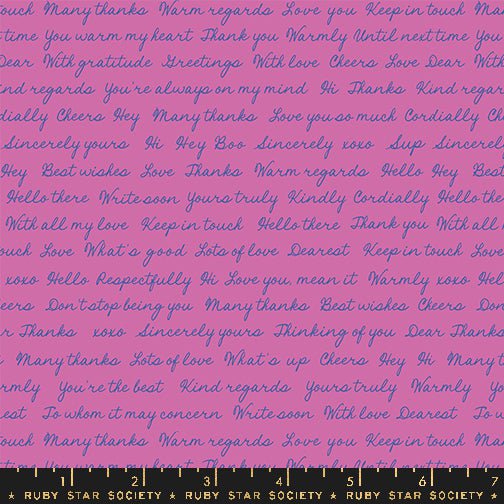 ouch Many thanks Warm regards Love you Keep in touch Man
time You warm my heart Thank you Warmly Until next time You
Dear With gratitude Greetings With love Cheers Love Dear With
ind regards You're always on my mind Hi Thanks Kind regar
dially Cheers Hey Many thanks Love you so much Cordially Che
Sincerely yours Hi Hey Boo Sincerely xoxo Sup Sincerel
Hey Best wishes Love Thanks Warm regards Hello Hey Best
Hello there Write soon Yours truly Kindly Cordially Hello the
With all my love Keep in touch Hello there Thank you With all
ouch Love What's good Lots of love Dearest Keep in touch Love
xoxo Hello Respectfully Hi Love you, mean it Warmly xoxo Hel
eers Don't stop being you Many thanks Best wishes Cheers Don
r Thanks xoxo Sincerely yours Thinking of you Dear Thanks
Many thanks Lots of love What's up Cheers Hey Hi Many t
rmly You're the best Kind regards Yours truly Warmly Yo
est To whom it may concern Write soon With love Dearest To w
ouch Many thanks Warm regards Love you Keep in touch Man
time You warm my heart Thank you Warmly Until next time You
1 2 3 4 5 6
RUBY STAR SOCIETY ★ RUBY STAR SOCIETY ★ RUBY STAR SOCIETY ★ RUBY STAR SOCIETY